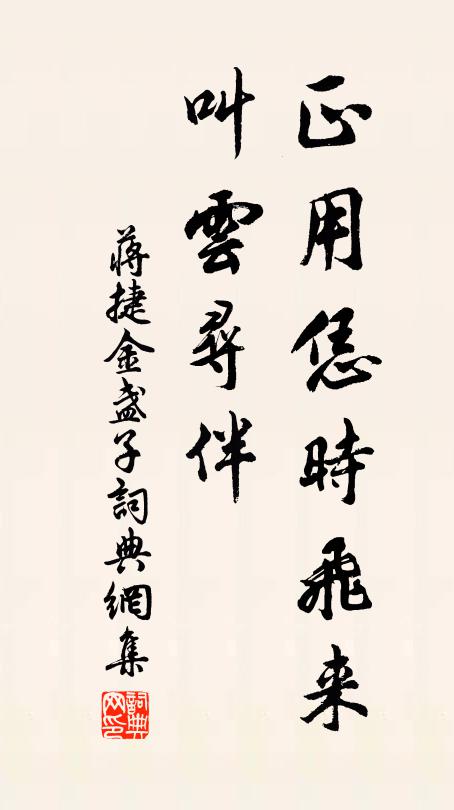 正用恁時飛来
叫雲尋伴
蔣捷金盞子詞典網集
詞典
网印